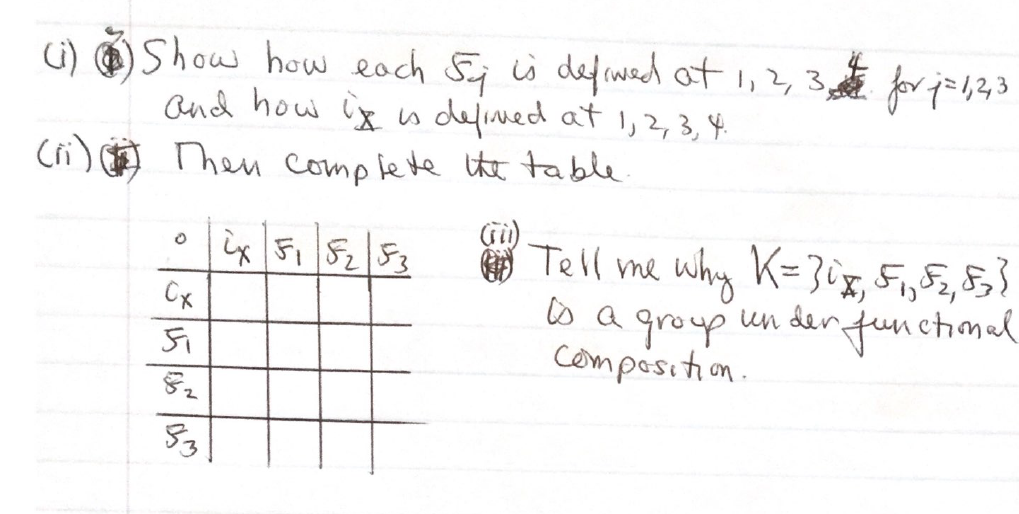 (i) Show how each ξj is defined at 1, 2, 3, 4 for j=1,2,3
and how iX is defined at 1, 2, 3, 4.
(ii) Then complete the table.
∘ iX ξ1 ξ2 ξ3
iX
ξ1
ξ2
ξ3
(iii) Tell me why K={iX, ξ1, ξ2, ξ3}
is a group under functional
composition.